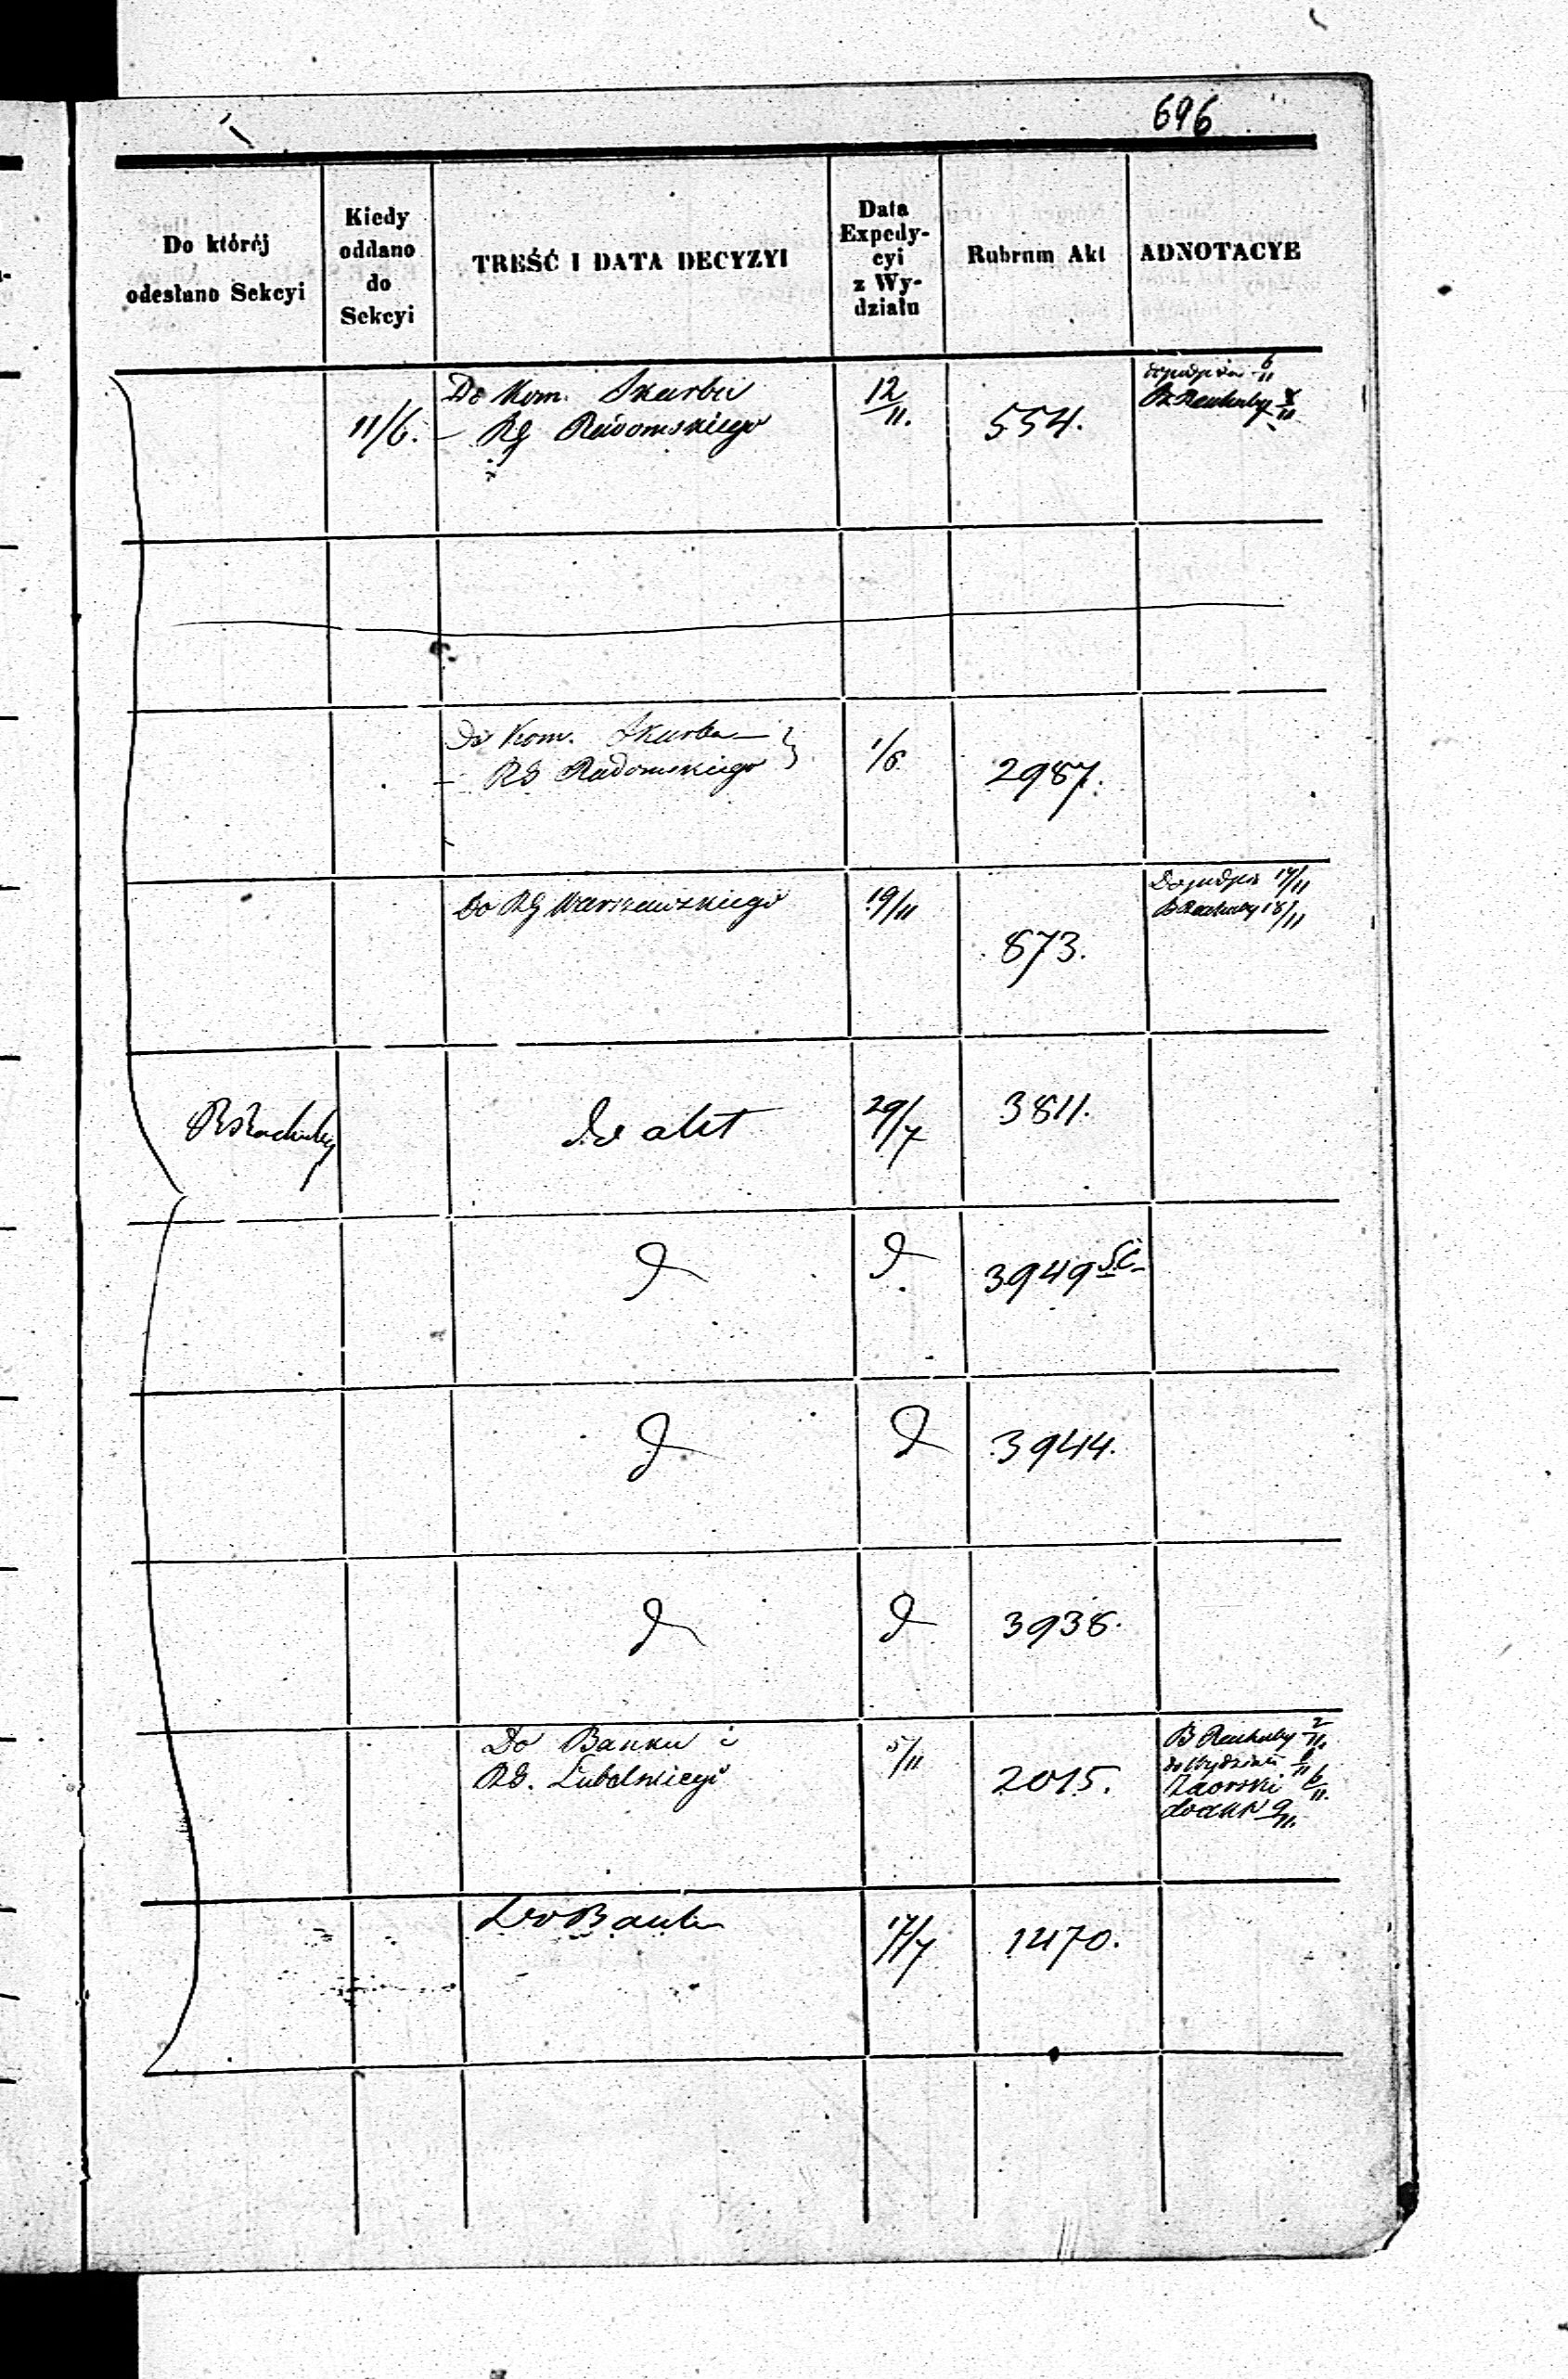 696
Do któréj
odesłano Sekcyi
Kiedy
oddano
do
Sekcyi
TREŚĆ I DATA DECYZYI
Data
Expedy-
cyi
z Wy-
działu
Rubrum Akt
ADNOTACYE
11/6.
Do Kom. Skarbu
— RG Radomskiego
12/11.
554.
6/11
8/11
Do Kom. Skarbu —
— RG Radomskiego }
1/6
2987.
Do RG Warszawskiego
19/11
873.
Do podpisu 17/11
B Rachuby 18/11
B Rachuby
do akt
29/7
3811.
d
d
3949 S.C.
d
d
3944.
d
d
3938.
Do Banku i
RG. Lubelskiego
5/11
2015.
B Rachuby 2/11.
do Wydziału
Zaorski 6/11.
9/11.
Do Banku
17/7
1470.